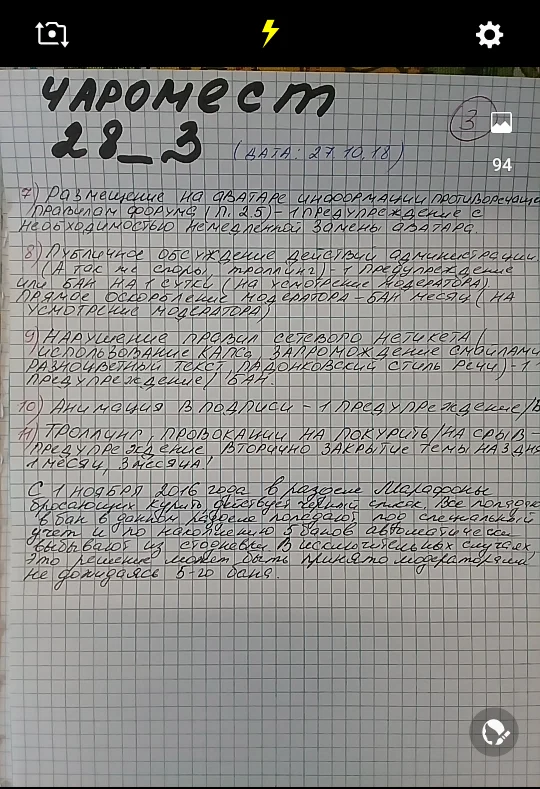 ЧАРОМЕСТ
28_3
(ДАТА: 27.10.18)
3
94
7) Размещение на аватаре информации противоречаще
правилам форума (п. 2.5) - 1 предупреждение с
необходимостью немедленной замены аватара.
8) Публичное обсуждение действий администрации.
(А так же споры, троллинг) - 1 предупреждение
или бан на 1 сутки (на усмотрение модератора)
Прямое оскорбление модератора - бан месяц (на
усмотрение модератора)
9) Нарушение правил сетевого нетикета /
использование капса, запромождение смайлами
разноцветный текст, падонковский стиль речи) - 1
предупреждение/ бан.
10) Анимация в подписи - 1 предупреждение/Б
11) Троллинг, провокации на покурить/на срыв -
предупреждение, вторично закрытие темы на 3 дня
1 месяц, 3 месяца!
С 1 ноября 2016 года в разделе Марафоны
бросающих курить действует чёрный список. Все попадаю
в бан в данном разделе попадают под специальный
учет и по накоплению 5 банов автоматически
выбывают из Исключительных случаях,
это решение может быть принято модераторами
не дожидаясь 5-го бана.